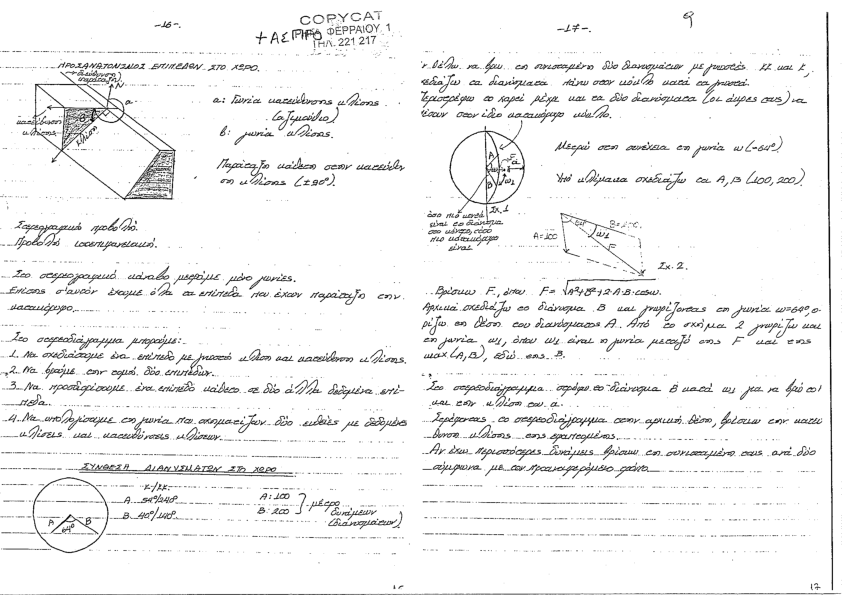 -16-.
COPYCAT
+ ΑΣΠΡΟ
ΡΗΓΑ ΦΕΡΡΑΙΟΥ 1
ΤΗΛ. 221 217
ΠΡΟΣΑΝΑΤΟΛΙΣΜΟΣ ΕΠΙΠΕΔΩΝ ΣΤΟ ΧΩΡΟ.
διεύθυνση
παράταξη
Ν
α
β
κατεύθυνση
κλίσης
κλίση
α: Γωνία κατεύθυνσης κλίσης
(αζιμούθιο)
β: γωνία κλίσης.
Παράταξη κάθετη στην κατεύθυν
ση κλίσης (±90°).
Στερεογραφική προβολή.
Προβολή ισοεπιφανειακή.
Στο στερεογραφικό κάναβο μετράμε μόνο γωνίες.
Επίσης σ'αυτόν έχουμε όλα τα επίπεδα που έχουν παράταξη την
κατακόρυφο.
Στο στερεοδιάγραμμα μπορούμε:
1. Να σχεδιάσουμε ένα επίπεδο με γνωστό κλίση και κατεύθυνση κλίσης.
2. Να βρούμε την τομή δύο επιπέδων.
3. Να προσδιορίσουμε ένα επίπεδο κάθετο σε δύο άλλα δεδομένα επί-
πεδα.
4. Να υπολογίσουμε τη γωνία που σχηματίζουν δύο ευθείες με δεδομένες
κλίσεις και κατευθύνσεις κλίσεων.
ΣΥΝΘΕΣΗ ΔΙΑΝΥΣΜΑΤΩΝ ΣΤΟ ΧΩΡΟ
Κ/ΚΚ.
Α 54°/240°
Β. 40°/140°
Α: 100
Β: 200
μέτρο
δυνάμεων
(διανυσμάτων)
Α
Β
64°
-17-.
θέλω να βρω τη συνισταμένη δύο διανυσμάτων με γνωστές ΚΚ και Κ,
σχεδιάζω τα διανύσματα πάνω στον κύκλο κατά τα γνωστά.
Περιστρέφω το χαρτί μέχρι και τα δύο διανύσματα (οι άκρες τους) να
πέσουν στον ίδιο κατακόρυφο κύκλο.
Α
Β
F
ω1
Σχ. 1
όσο πιο κοντά
είναι το διάνυσμα
στο κέντρο, τόσο
πιο κατακόρυφο
είναι
Μετρώ στη συνέχεια τη γωνία ω (=64°).
Υπό κλίμακα σχεδιάζω τα Α, Β (100, 200).
Α=100
64°
Β=200.
ω1
F
Σχ. 2.
Βρίσκω F, όπου F= √Α²+Β²+2·Α·Β·cosω.
Αρχικά σχεδιάζω το διάνυσμα Β και γνωρίζοντας τη γωνία ω=64°, ο-
ρίζω τη θέση του διανύσματος Α. Από το σχήμα 2 γνωρίζω και
τη γωνία ω1, όπου ω1 είναι η γωνία μεταξύ της F και της
max (Α, Β), εδώ της Β.
Στο στερεοδιάγραμμα στρέφω το διάνυσμα Β κατά ω1 για να βρω
και την κλίση του α.
Στρέφοντας το στερεοδιάγραμμα στην αρχική θέση, βρίσκω την κατεύ
θυνση κλίσης της
Αν έχω περισσότερες δυνάμεις βρίσκω τη συνισταμένη τους ανά δύο
σύμφωνα με τον προαναφερόμενο τρόπο.
17